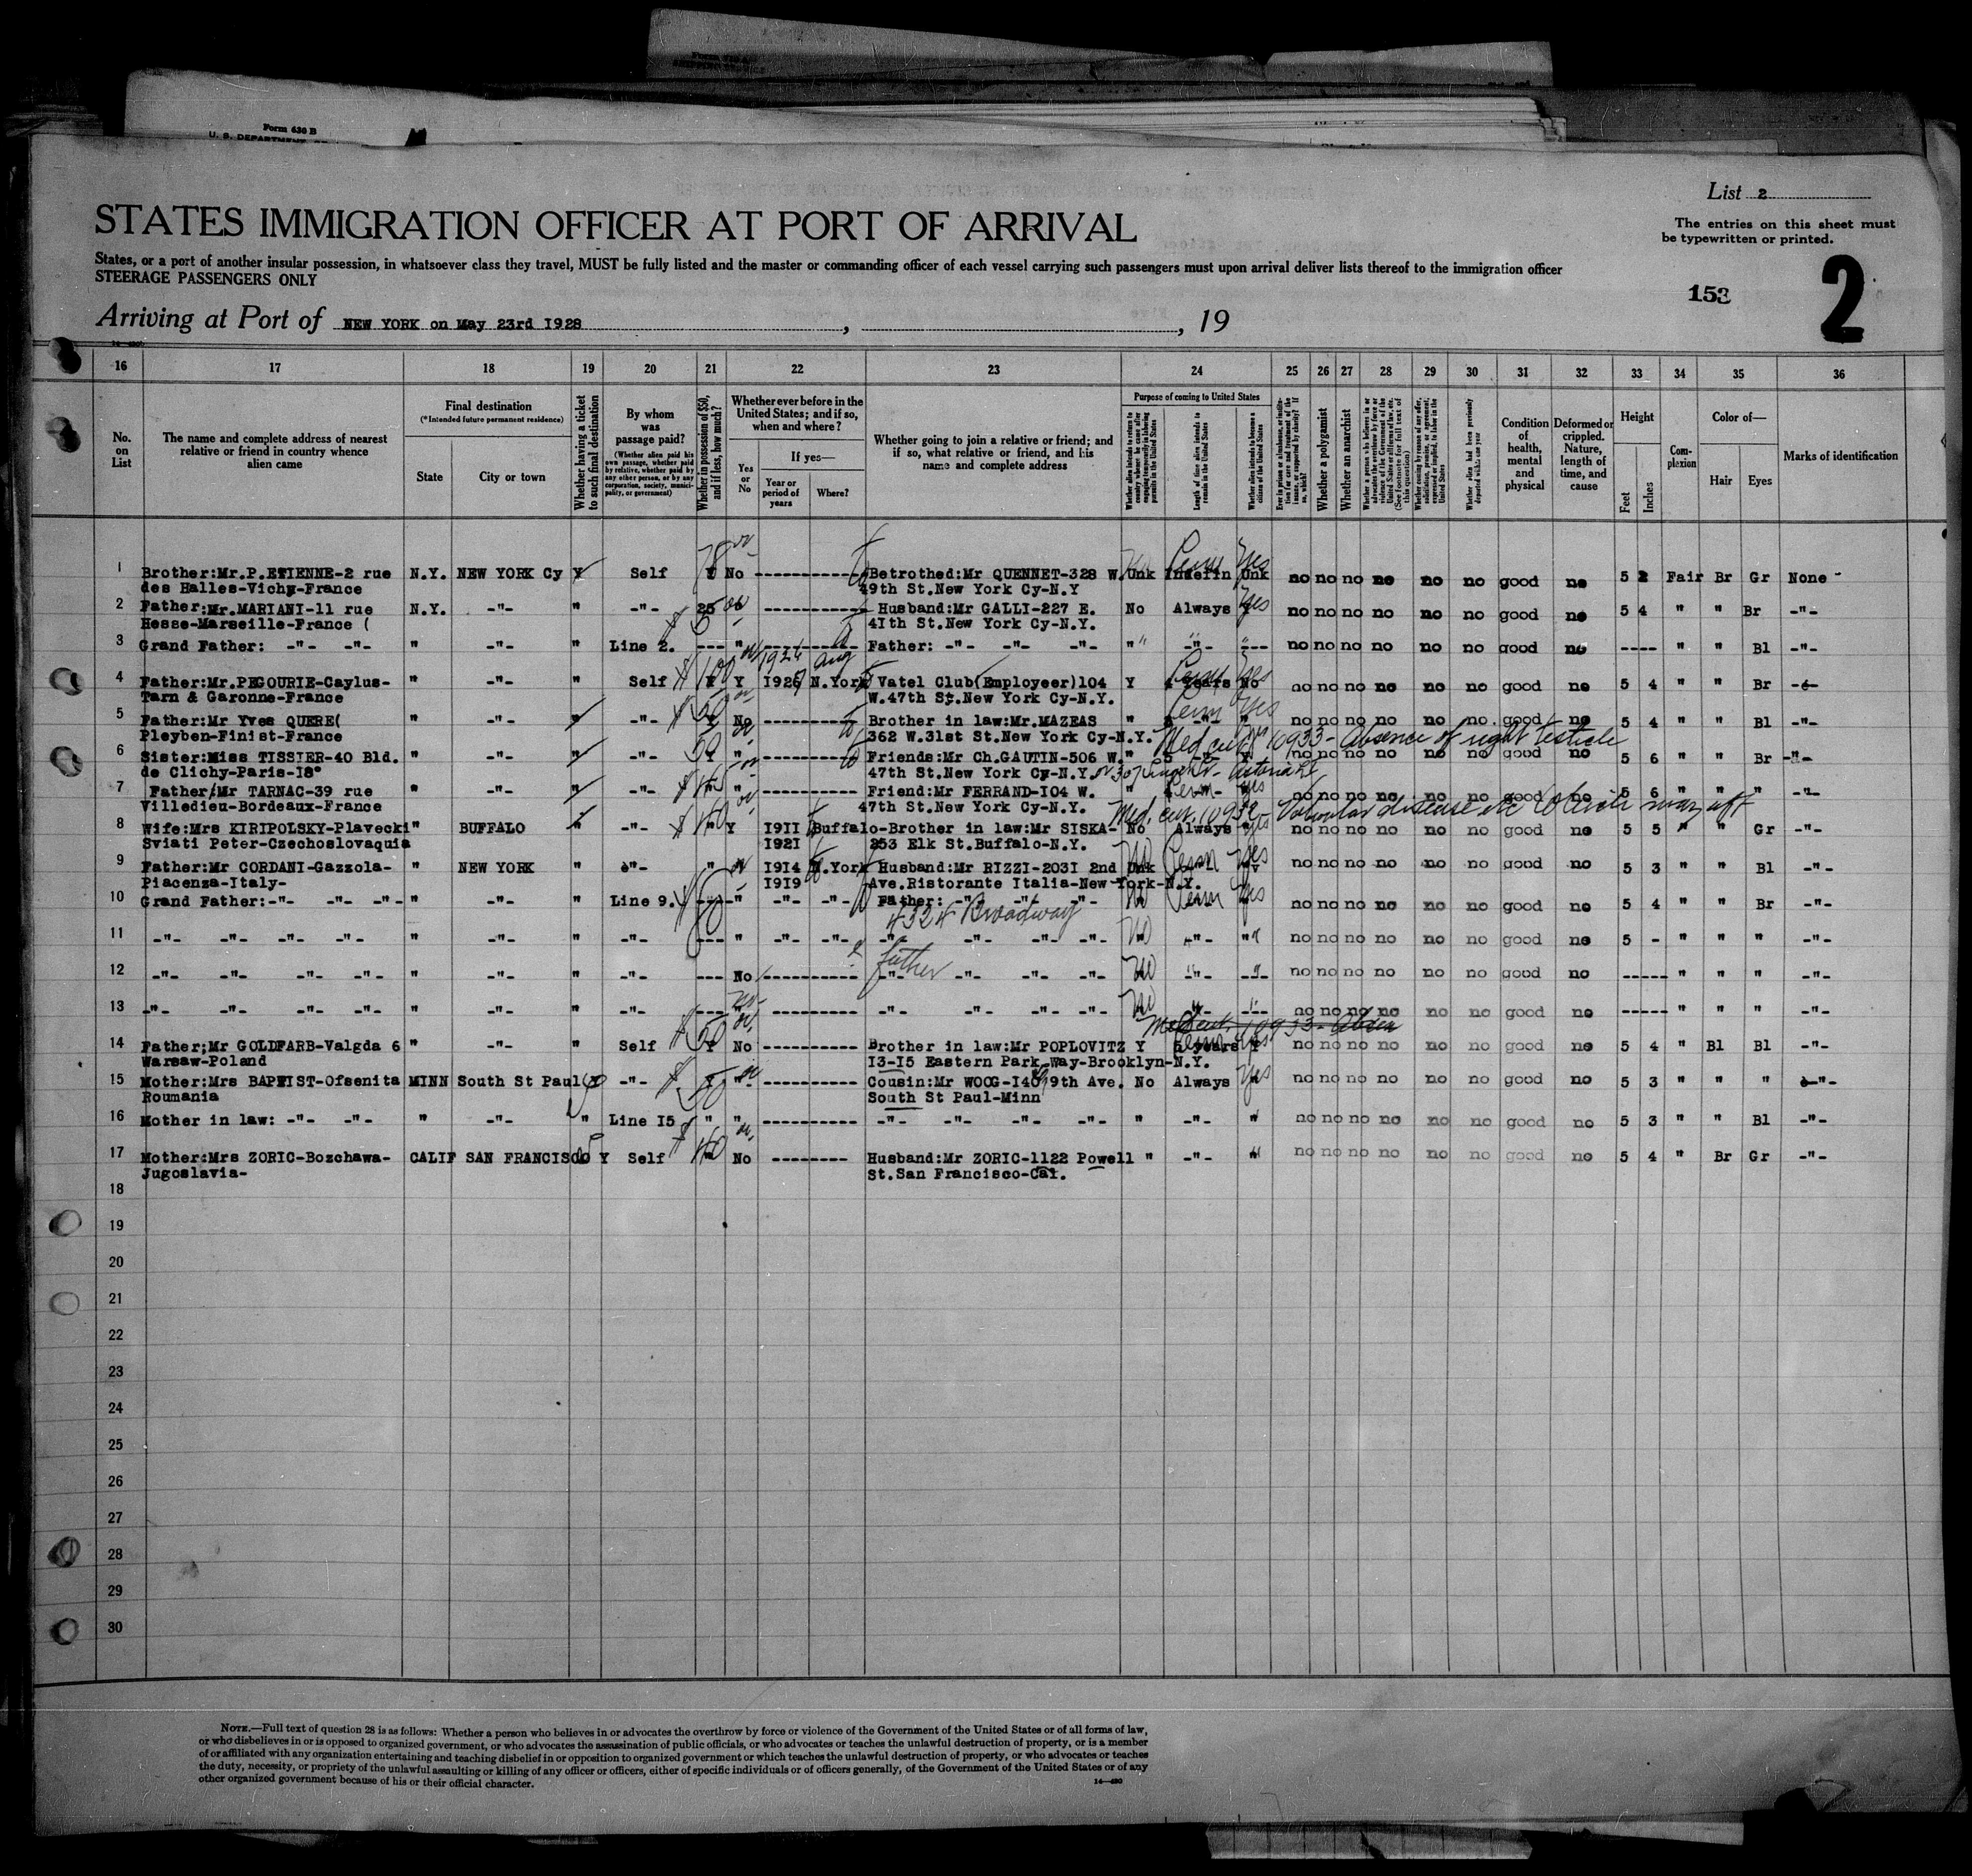 Form 630 B
U. S. DEPARTMENT OF
List 2
STATES IMMIGRATION OFFICER AT PORT OF ARRIVAL
The entries on this sheet must
be typewritten or printed.
States, or a port of another insular possession, in whatsoever class they travel, MUST be fully listed and the master or commanding officer of each vessel carrying such passengers must upon arrival deliver lists thereof to the immigration officer
STEERAGE PASSENGERS ONLY
153
2
Arriving at Port of NEW YORK on May 23rd I928 , , 19
16 17 18 19 20 21 22 23 24 25 26 27 28 29 30 31 32 33 34 35 36
No. on List
The name and complete address of nearest relative or friend in country whence alien came
Final destination
(*Intended future permanent residence)
State
City or town
Whether having a ticket to such final destination
By whom was passage paid?
(Whether alien paid his own passage, whether paid by relative, whether paid by any other person, or by any corporation, society, municipality, or government)
Whether in possession of $50, and if less, how much?
Whether ever before in the United States; and if so, when and where?
Yes or No
If yes—
Year or period of years
Where?
Whether going to join a relative or friend; and if so, what relative or friend, and his name and complete address
Purpose of coming to United States
Length of time alien intends to remain in the United States
Whether alien intends to become a citizen of the United States
Whether a polygamist
Whether an anarchist
(See footnote for full text of this question)
Condition of health, mental and physical
Deformed or crippled. Nature, length of time, and cause
Height
Feet
Inches
Complexion
Color of—
Hair
Eyes
Marks of identification
1 Brother:Mr.P.ETIENNE-2 rue N.Y. NEW YORK Cy Y Self Y No ----------- Betrothed:Mr QUENNET-328 W. Unk Indefin Unk no no no no no no good no 5 2 Fair Br Gr None
des Halles-Vichy-France 49th St.New York Cy-N.Y
Perm Yes
2 Father:Mr.MARIANI-11 rue N.Y. -"- " -"- 25 ----------- Husband:Mr GALLI-227 E. No Always Yes no no no no no no good no 5 4 " " Br -"-
Hesse-Marseille-France ( 4Ith St.New York Cy-N.Y.
3 Grand Father: -"- -"- " -"- " Line 2. --- " ----------- Father: -"- -"- -"- " -"- --- no no no no no no good no ---- " " Bl -"-
4 Father:Mr.PEGOURIE-Caylus- " -"- " Self Y Y I926 N.York Vatel Club(Employeer)104 Y 4 years No no no no no no no good no 5 4 " " Br -"-
Tarn & Garonne-France W.47th St.New York Cy-N.Y.
Perm Yes
5 Father:Mr Yves QUERE( " -"- " -"- Y No ----------- Brother in law:Mr.MAZEAS " -"- " no no no no no no good no 5 4 " " Bl -"-
Pleyben-Finist-France 362 W.31st St.New York Cy-N.Y.
Perm Yes
Med cert 10933- Absence of right testicle
6 Sister:Miss TISSIER-40 Bld. " -"- " -"- Y " ----------- Friends:Mr Ch.GAUTIN-506 W. " 5 -"- Y no no no no no no good no 5 6 " " Br -"-
de Clichy-Paris-I8° 47th St.New York Cy-N.Y.
7 Father:Mr TARNAC-39 rue " -"- " -"- " ----------- Friend:Mr FERRAND-I04 W. " Yes no no no no no no good no 5 6 " " " -"-
Villedieu-Bordeaux-France 47th St.New York Cy-N.Y.
Med. cert. 10932- Valvular disease
8 Wife:Mrs KIRIPOLSKY-Plavecki " BUFFALO " -"- " Y I9II Buffalo-Brother in law:Mr SISKA- No Always Yes no no no no no no good no 5 5 " " Gr -"-
Sviati Peter-Czechoslovaquia I92I 253 Elk St.Buffalo-N.Y.
9 Father:Mr CORDANI-Gazzola- " NEW YORK " -"- " I9I4 N.York Husband:Mr RIZZI-203I 2nd Unk -"- no no no no no no good no 5 3 " " Bl -"-
Piacenza-Italy- I9I9 Ave.Ristorante Italia-New-York-N.Y.
No Perm Yes
10 Grand Father:-"- -"- -"- " -"- " Line 9. --- " -"- -"- Father: -"- -"- -"- No Perm Yes no no no no no no good no 5 4 " " Br -"-
4324 Broadway
11 -"- -"- -"- -"- " -"- " -"- --- " -"- -"- -"- -"- -"- -"- No -"- " no no no no no no good no 5 - " " " -"-
12 -"- -"- -"- -"- " -"- " -"- --- No ----------- -"- -"- -"- -"- No -"- no no no no no no good no ----- " " " -"-
father
13 -"- -"- -"- -"- " -"- " -"- --- ----------- -"- -"- -"- -"- No no no no no no no good no ----- " " " -"-
14 Father;Mr GOLDFARB-Valgda 6 " -"- " Self Y No ----------- Brother in law:Mr POPLOVITZ Y 5 years Y no no no no no no good no 5 4 " Bl Bl -"-
Warsaw-Poland I3-I5 Eastern Park-Way-Brooklyn-N.Y.
15 Mother:Mrs BAPTIST-Ofsenita MINN South St Paul Y -"- Y " ----------- Cousin:Mr WOOG-I40 9th Ave. No Always Yes no no no no no no good no 5 3 " " " -"-
Roumania South St Paul-Minn
16 Mother in law: -"- -"- " -"- " Line I5 " " ----------- -"- -"- -"- -"- " -"- " no no no no no no good no 5 3 " " Bl -"-
17 Mother:Mrs ZORIC-Bozchawa- CALIF SAN FRANCISCO Y Self No -------- Husband:Mr ZORIC-1122 Powell " -"- " no no no no no no good no 5 4 " Br Gr -"-
Jugoslavia- St.San Francisco-Cal.
18
19
20
21
22
23
24
25
26
27
28
29
30
NOTE.—Full text of question 28 is as follows: Whether a person who believes in or advocates the overthrow by force or violence of the Government of the United States or of all forms of law,
or who disbelieves in or is opposed to organized government, or who advocates the assassination of public officials, or who advocates or teaches the unlawful destruction of property, or is a member
of or affiliated with any organization entertaining and teaching disbelief in or opposition to organized government or which teaches the unlawful destruction of property, or who advocates or teaches
the duty, necessity, or propriety of the unlawful assaulting or killing of any officer or officers, either of specific individuals or of officers generally, of the Government of the United States or of any
other organized government because of his or their official character.
14—430